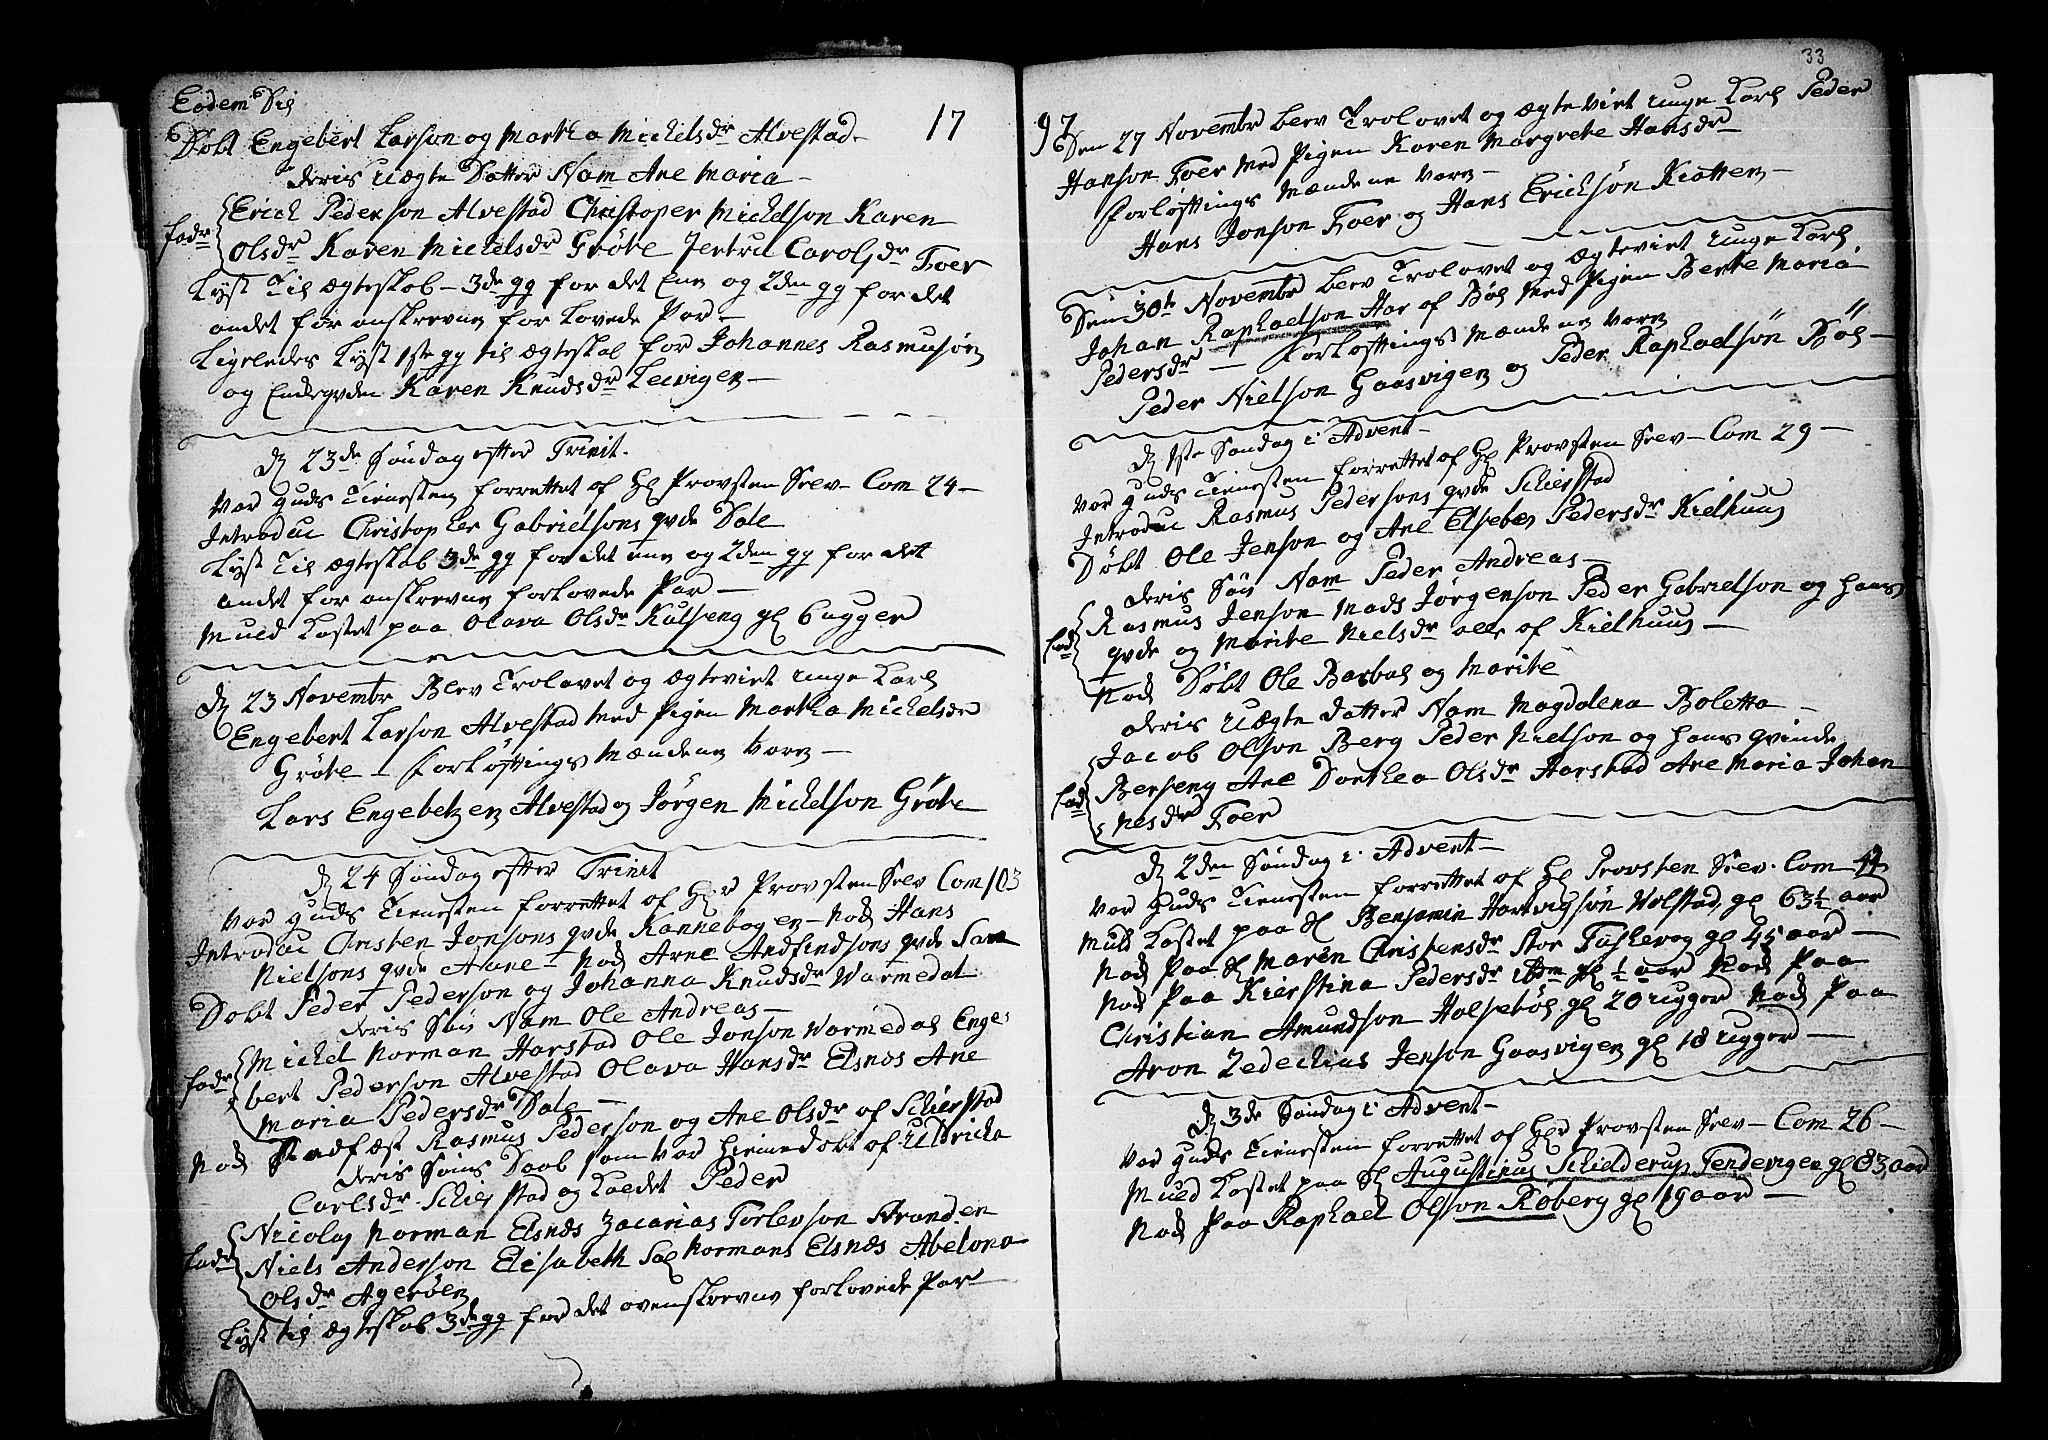 Eodem Die
17
Døbt Engebert Larson og Martha Mickelsdr Alvestad
deris uægte Datter Nam Ane Maria
Erich Pederson Alvestad Christoper Mickelson Karen
fadr
Olsdr Karen Mickelsdr Grøte Jertru Carolsdr Foer
Lyst til ægteskab 3de gg for det Ene og 2den gg for det
andet før anskrevne for Lovede Par
Ligeledes Lyst 1ste gg til ægteskab for Johannes Rasmusøn
og Karen Knudsdr Leevigen
D 23de Søndag efter Trinit.
Var Guds Tienesten forrettet af Hr Provsten Selv Com 24
Introduc Christopher Gabrielsons qvde Dale
Lyst til ægteskab 3de gg for det ene og 2den gg for det
andet før anskrevne forlovede Par
Muld Kastet paa Olava Olsdr Kulseng gl 6 ugger
D 23 Novembr Blev Trolovet og ægteviet unge Karl
Engebert Larson Alvestad Med Pigen Martha Mickelsdr
Grøte forløftings Mændene varn
Lars Engebetzen Alvestad og Jørgen Mickelson Grøte
D 24 Søndag efter Trinit
Var Guds Tienesten forrettet af Her Provsten Selv Com 103
Introduc Christen Jonsons qvde Kannebogen Nok Hans
Nielsons qvde Aune Nok Arne Andfindsons qvde Sam
Døbt Peder Pederson og Johanna Knudsdr Varmedal
deris Søn Nam Ole Andreas
Mickel Norman Harstad Ole Jonson Varmedal Enge-
fadr
bert Pederson Alvestad Olava Hansdr Elsnæs Ane
Maria Pedersdr Dale
Nok Stadfæst Rasmus Pederson og Ane Olsdr af Schierstad
deris Søns Daab som var hiemedøbt af Uldricka
Carlsdr Schierstad og kaldet Peder
Nicolay Norman Elsnæs Zacarias Torlevson Stranden
fadr
Niels Anderson Elisabeth Sal Normans Elsnæs Abelona
Olsdr Agerøen
Lyst til ægteskab 3de gg for det ovenskrevne forlovede Par
33
97
Den 27 Novembr blev Trolovet og ægteviet unge Karl Peder
Hanson Foer Med Pigen Karen Margrete Hansdr
forløftings Mændene varn
Hans Jonson Foer og Hans Ericksøn Kiøtten
Den 30te Novembr blev Trolovet og ægteviet unge Karl
Johan Raphaelson Har af Bøl Med Pigen Berte Maria
Pedersdr forløftings Mændene varn
Peder Nielson Gaasvigen og Peder Raphaelsøn Bøl
D 1ste Søndag i Advent
Var Guds Tienesten forrettet af Hr Provsten Selv Com 29
Introduc Rasmus Pedersons qvde Schierstad
Døbt Ole Jenson og Ane Elsebe Pedersdr Kielhuus
deris Søn Nam Peder Andreas
Rasmus Jenson Mads Jørgenson Peder Gabrielson og hans
fad
qvde og Marite Nielsdr alle af Kielhuus
Nok Døbt Ole Barbal og Marite
deris uægte datter Nam Magdalena Boletta
Jacob Olson Berg Peder Nielson og hans qvinde
Berseng Ane Dorthea Olsdr Harstad Ane Maria Johan
fad
nesdr Foer
D 2den Søndag i Advent
Var Guds Tienesten forrettet af Hr Provsten Selv Com
Muld Kastet paa Sl Benjamin Hartvigsøn Volstad gl 63½ aar
Nok paa Sl Maren Christensdr Stor Fuskevog gl 45 aar
Nok paa Kierstina Pedersdr ibdm gl ½ aar Nok paa
Christian Amundson Halsebøl gl 20 ugger Nok paa
Aron Zedechias Jenson Gaasvigen gl 18 ugger
D 3de Søndag i Advent
Var Guds Tienesten forrettet af Her Provsten Selv Com 26
Muld Kastet paa Sl Augustinus Schielderup Tendevigen gl 83 aar
Nok paa Raphael Olson Røberg gl 19 aar